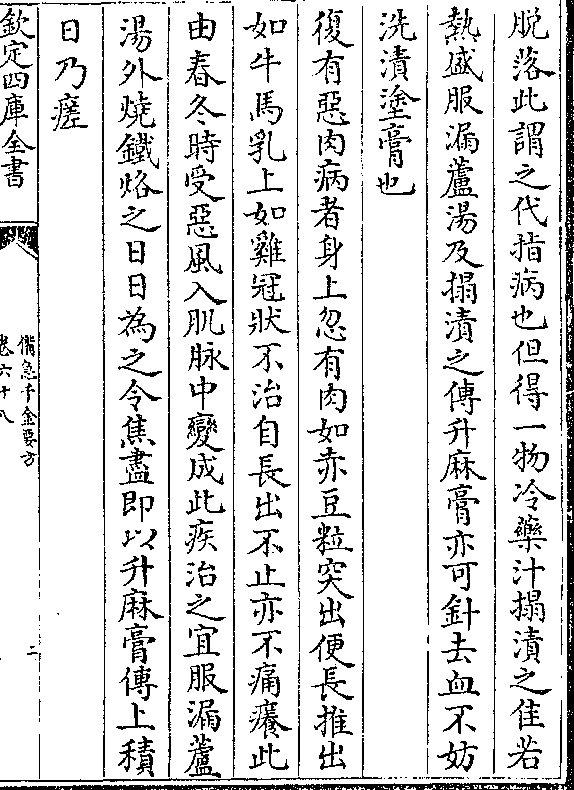 脱落此謂之代指病也但得一物冷藥汁搨漬之佳若
熱盛服漏蘆湯及搨漬之傅升麻膏亦可針去血不妨
洗漬塗膏也
復有惡肉病者身上忽有肉如赤豆粒突出便長推出
如牛馬乳上如雞冠狀不治自長出不止亦不痛癢此
由春冬時受惡風入肌脉中變成此疾治之宜服漏蘆
湯外燒鐵烙之日日為之令焦盡即以升麻膏傅上積
日乃瘥
欽定四庫全書
備急千金要方
卷六十八
二